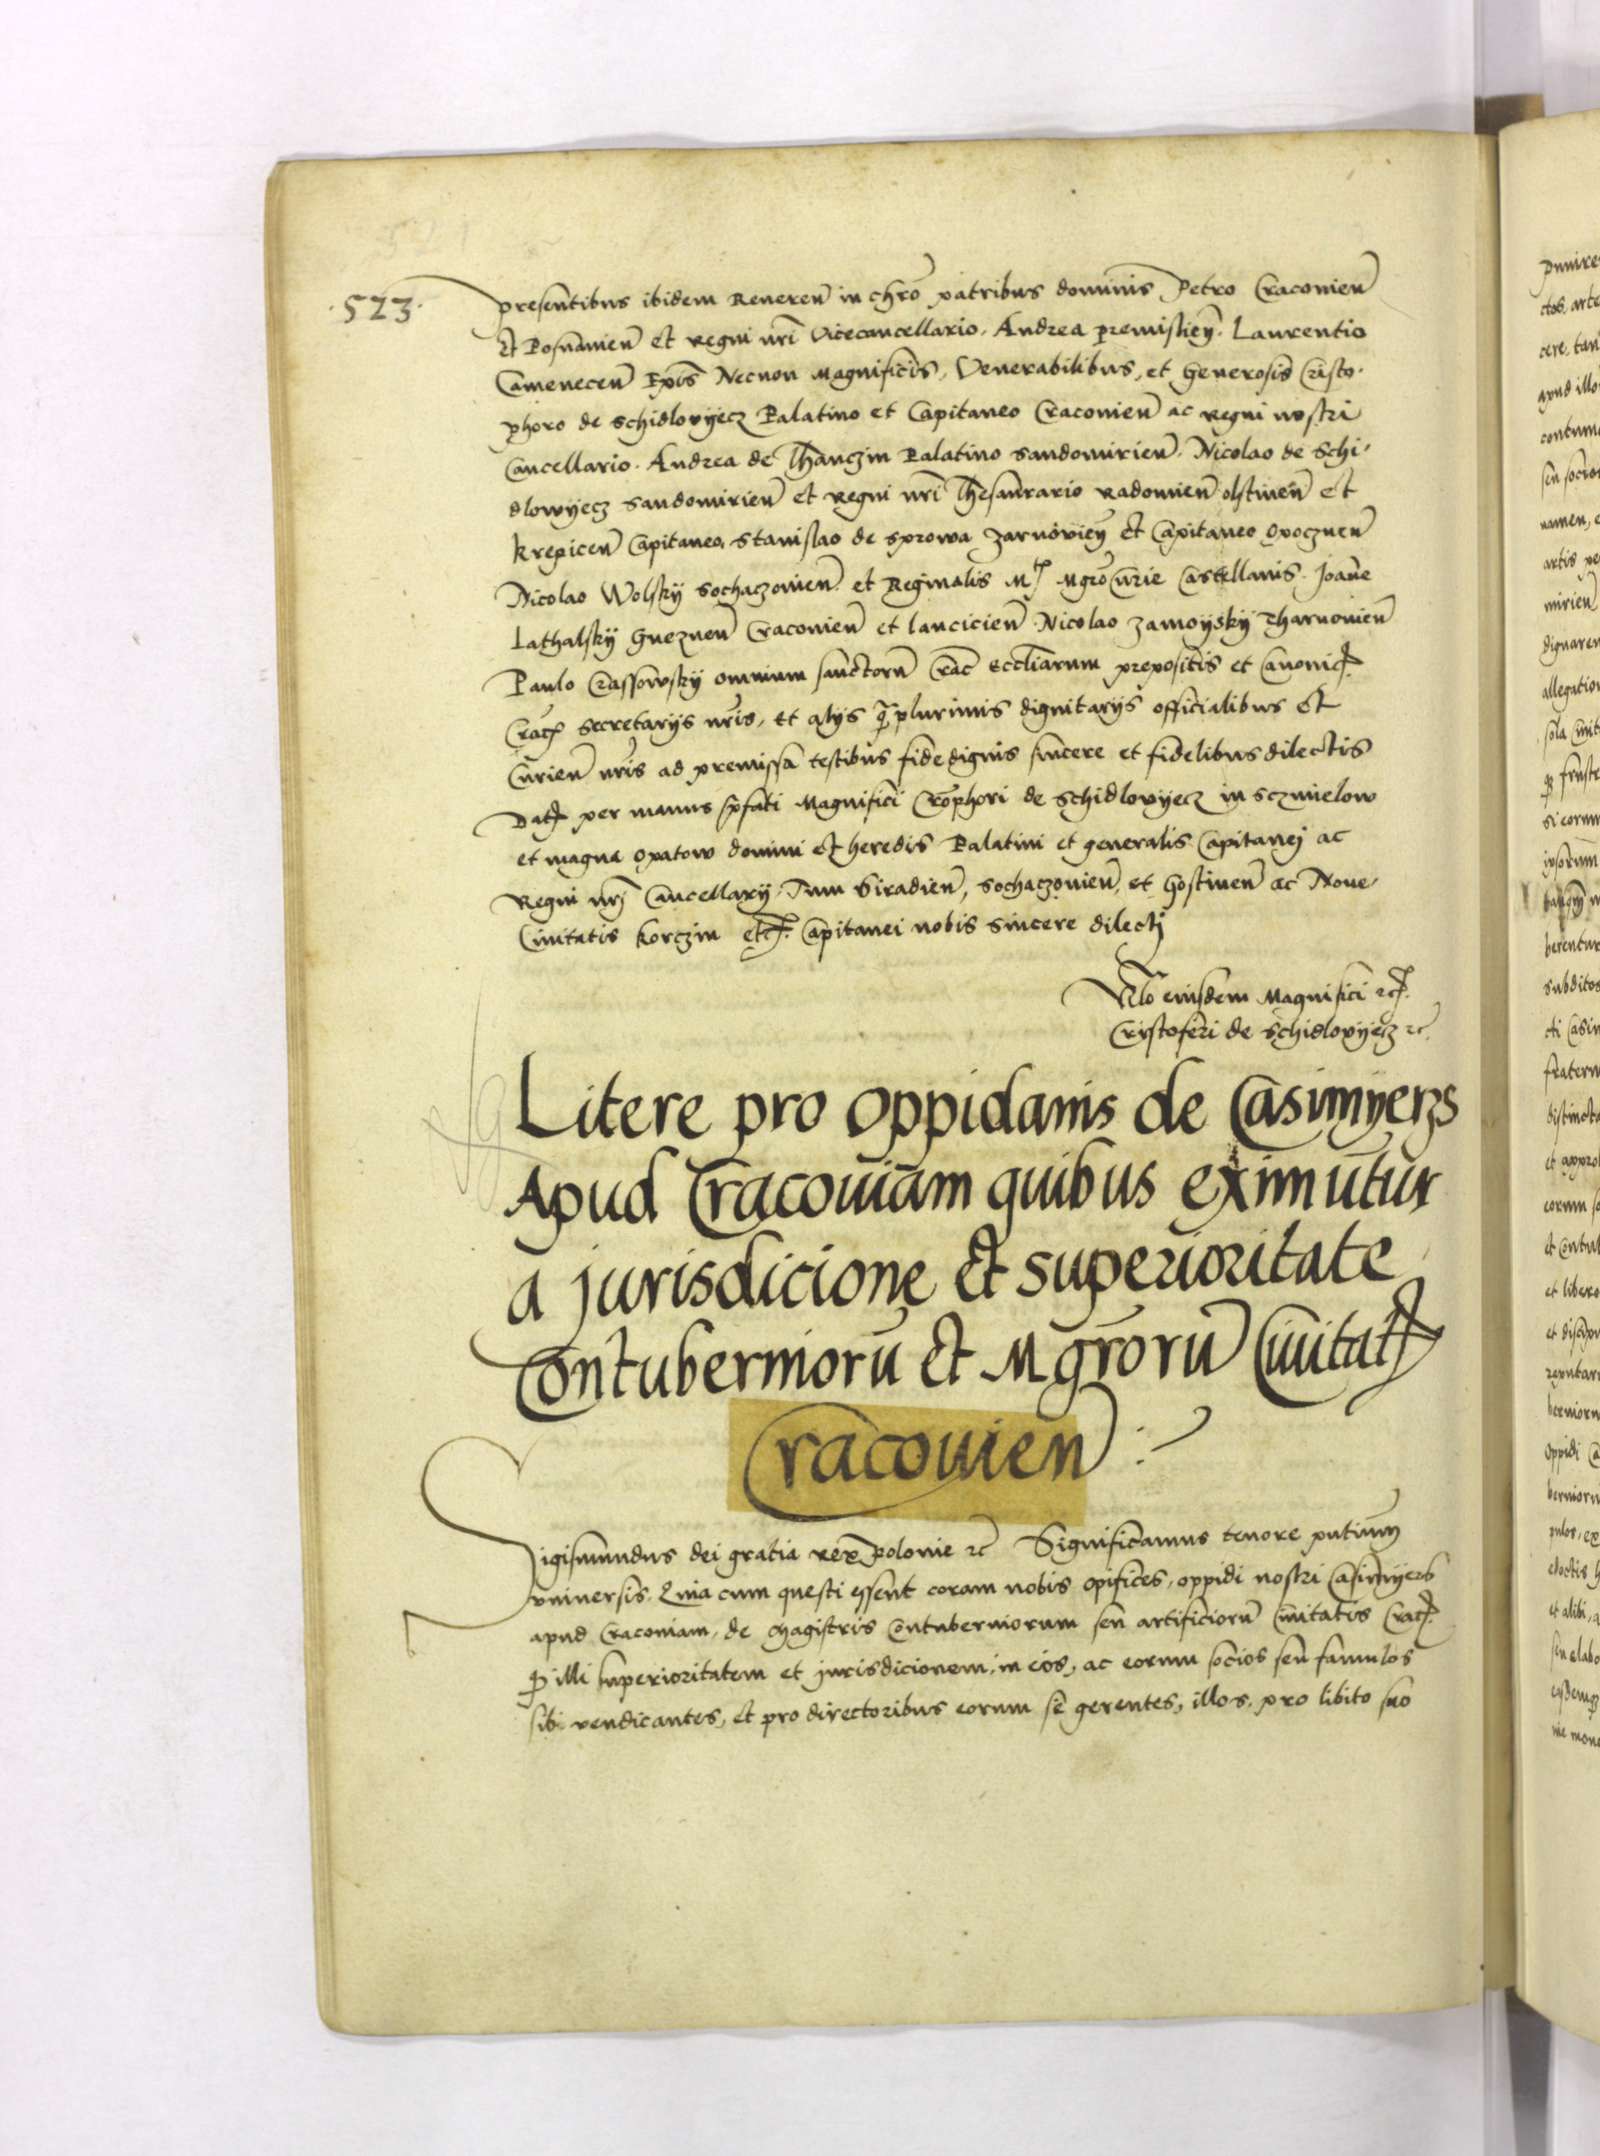 ·523·
presentibus ibidem Reveren in chro patribus dominis Petro Cracovien
et Posnanien et regni nri Vicecancellario. Andrea premislien. Laurentio
Camenecen Epis Necnon Magnificis, Venerabilibus, et Generosis Cristo-
phoro de Schidlovyecz Palatino et Capitaneo Cracovien ac regni nostri
Cancellario. Andrea de Thanczin Palatino Sandomirien. Nicolao de Schi-
dlowyecz Sandomirien et regni nri Thesaurario Radomien olstinen et
krepicen Capitaneo, Stanislao de Sprowa Zarnovien et Capitaneo Opocznen
Nicolao Wolsky Sochaczovien. et Reginalis Mtis Mgro Curie Castellanis. Joane
Lathalsky Gneznen Cracovien et lancicien Nicolao Zamoysky Tharnovien
Paulo Crassowsky omnium sanctoru Crac Eccliarum prepositis et Canonic
Crac Secretarys nris, et alys qplurimis dignitarys officialibus et
Curien nris ad premissa testibus fidedignis sincere et fidelibus dilectis
Dat per manus pfati Magnifici Crophori de Schidlovyecz in Sczmielow
et magna Opatow domini et heredis Palatini et generalis Capitanej ac
Regni nrj Cancellary. Tum Siradien, Sochaczovien, et Gostinen ac Nove
Civitatis Korczin etc. Capitanei nobis sincere dilectj
Rlo eiusdem Magnifici etc.
Crystoferi de Schidlovyecz etc
Litere pro oppidanis de Casimyerzs
Apud Cracoviam quibus eximutur
a jurisdicione et superioritate
Contuberniorũ et Mgrorũ Civitat
Cracovien
Sigismundus dei gratia rex polonie etc Significamus tenore pntium
universis. Quia cum questi essent coram nobis opifices, oppidi nostri Casimyers
apud Cracoviam, de Magistris Contuberniorum seu artificiorũ Civitatis Crac.
q illi superioritatem et jurisdicionem, in eos, ac eorum socios seu famulos
sibi vendicantes, et pro directoribus eorum se gerentes, illos, pro libito suo